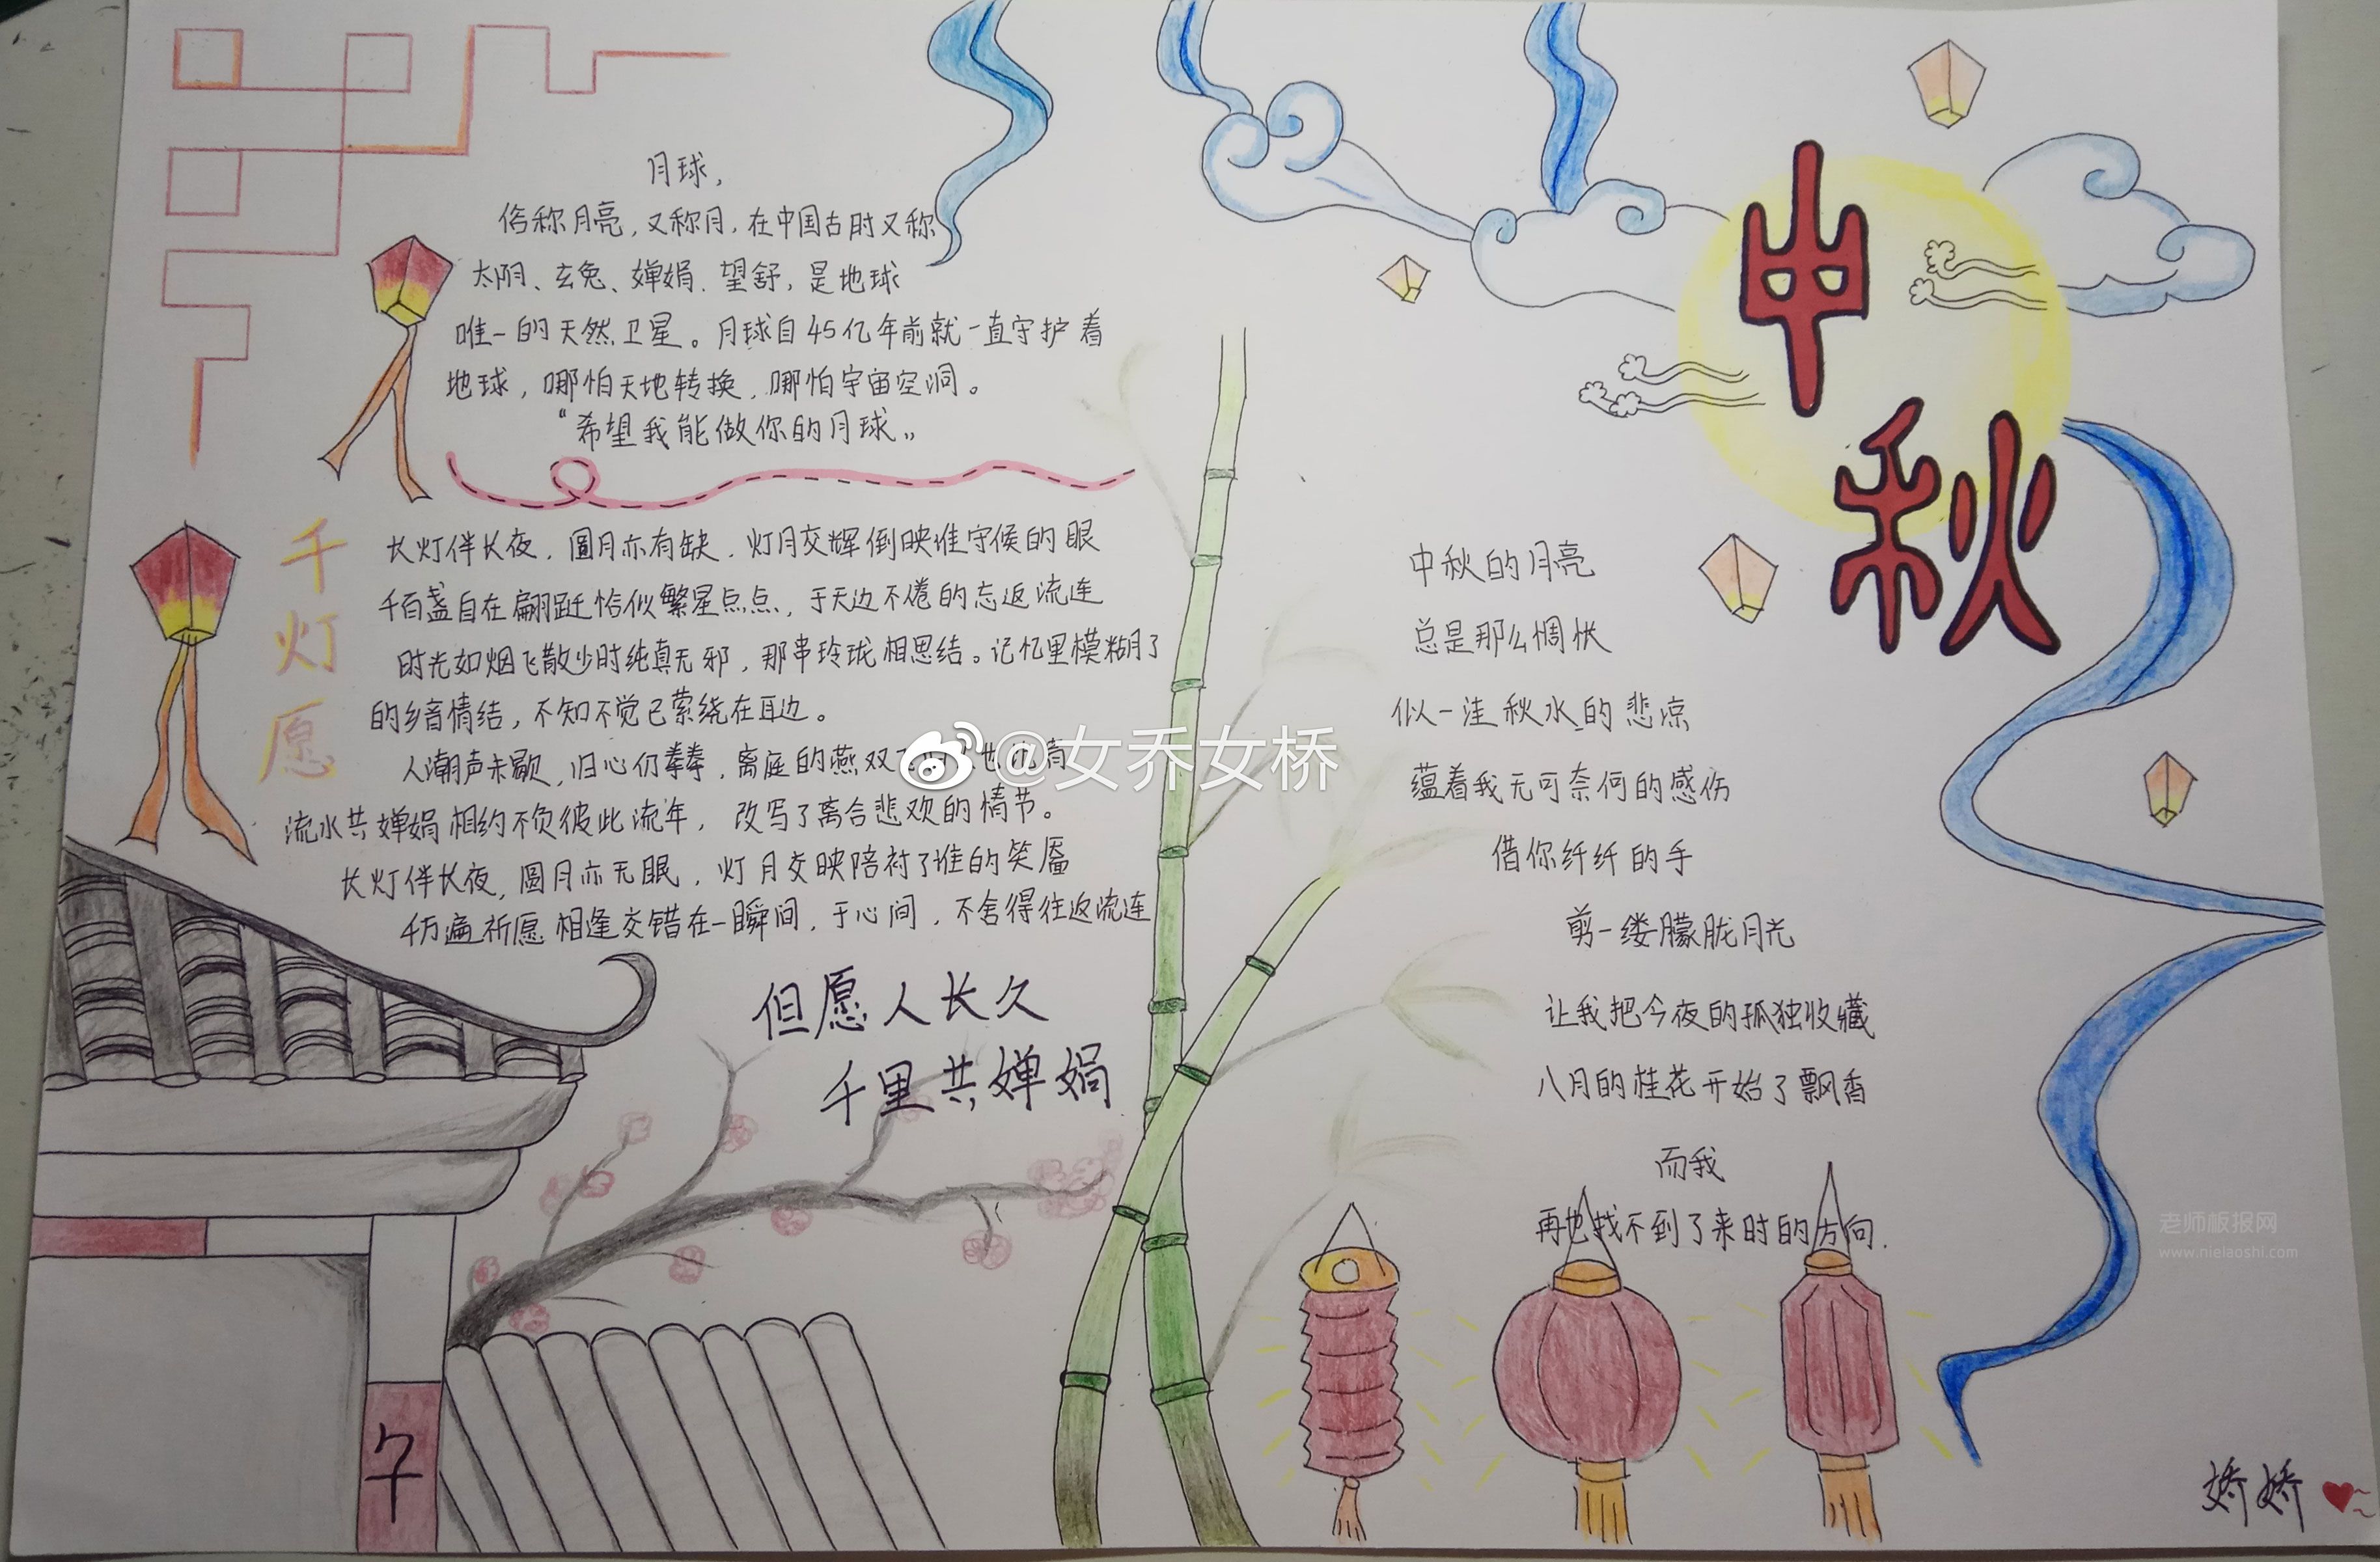 中秋
月球，
俗称月亮，又称月，在中国古时又称
太阴、玄兔、婵娟、望舒，是地球
唯一的天然卫星。月球自45亿年前就一直守护着
地球，哪怕天地转换，哪怕宇宙空洞。
“希望我能做你的月球„
千灯愿
长灯伴长夜，圆月亦有缺，灯月交辉倒映谁守候的眼
千百盏自在翩跹恰似繁星点点，于天边不倦的忘返流连
时光如烟飞散少时纯真无邪，那串玲珑相思结。记忆里模糊了
的乡音情结，不知不觉已萦绕在耳边。
人潮声未歇，归心仍拳拳，离庭的燕双
流水共婵娟相约不负彼此流年，改写了离合悲欢的情节。
长灯伴长夜，圆月亦无眠，灯月交映陪衬了谁的笑靥
千万遍祈愿相逢交错在一瞬间，于心间，不舍得往返流连
但愿人长久
千里共婵娟
中秋的月亮
总是那么惆怅
似一洼秋水的悲凉
蕴着我无可奈何的感伤
借你纤纤的手
剪一缕朦胧月光
让我把今夜的孤独收藏
八月的桂花开始了飘香
而我
再也找不到了来时的方向.
娇娇
@女乔女桥
老师板报网
www.nielaoshi.com